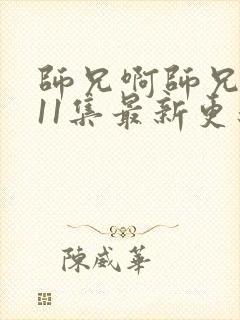 師兄啊師兄
11集最新更
陳威華